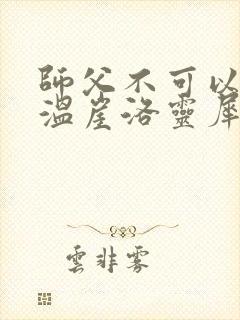 師父不可以
溫崖洛靈犀
雲非雾